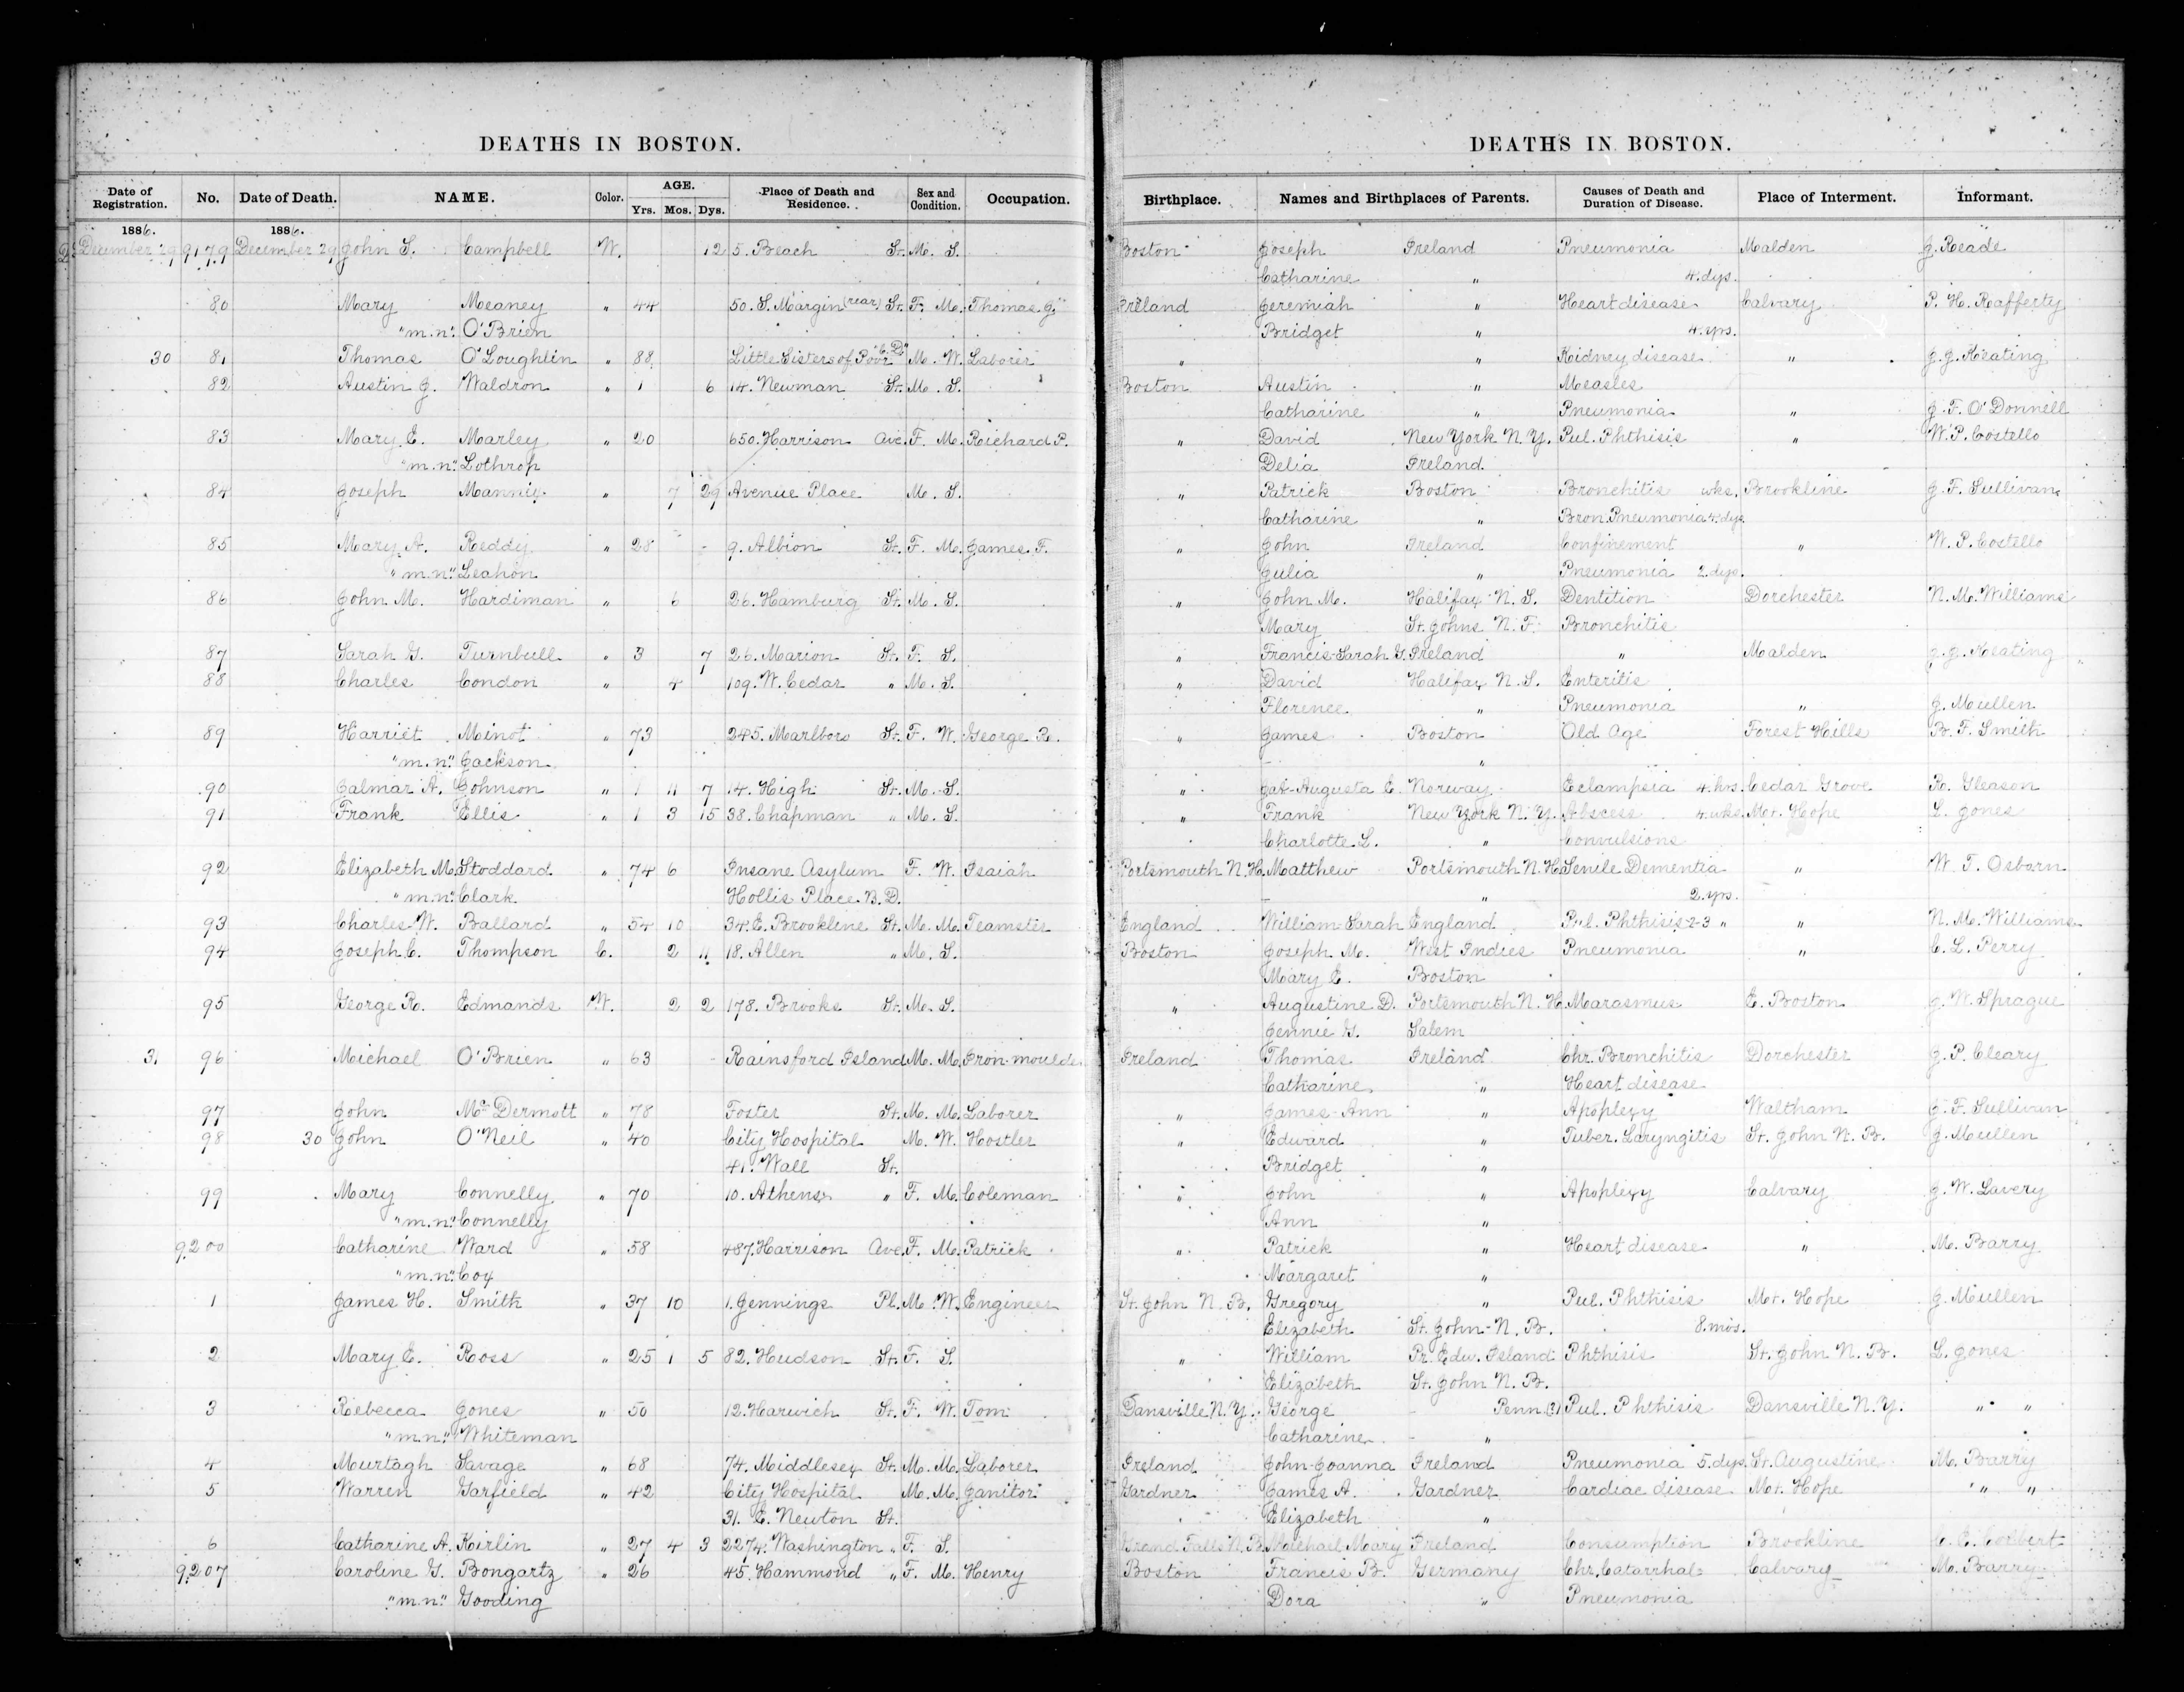 DEATHS IN BOSTON. DEATHS IN BOSTON.
Date of Registration. No. Date of Death. NAME. Color. AGE. Yrs. Mos. Dys. Place of Death and Residence. Sex and Condition. Occupation. Birthplace. Names and Birthplaces of Parents. Causes of Death and Duration of Disease. Place of Interment. Informant.
1886. 1886.
December 29 9179 December 29 John S. Campbell W. 12 5. Beach St. M. S. Boston Joseph Ireland Pneumonia Malden J. Reade
Catharine " 4. dys.
80 Mary Meaney " 44 50. S. Margin (rear) St. F. M. Thomas J. Ireland Jeremiah " Heart disease Calvary P. H. Rafferty
"m.n." O'Brien Bridget " 4. yrs.
30 81 Thomas O'Loughlin " 88 Little Sisters of Poor M. W. Laborer " " Kidney disease " J. J. Keating
82 Austin J. Waldron " 1 6 14. Newman St. M. S. Boston Austin " Measles
Catharine " Pneumonia " J. F. O'Donnell
83 Mary E. Marley " 20 650. Harrison Ave. F. M. Richard P. " David New York N. Y. Pul. Phthisis " W. P. Costello
"m.n." Lothrop Delia Ireland
84 Joseph Mannix " 7 29 Avenue Place M. S. " Patrick Boston Bronchitis wks. Brookline J. F. Sullivan
Catharine " Bron. Pneumonia 4. dys.
85 Mary A. Reddy " 28 9. Albion St. F. M. James F. " John Ireland Confinement " W. P. Costello
"m.n." Leahon Julia " Pneumonia 2. dys.
86 John M. Hardiman " 6 26. Hamburg St. M. S. " John M. Halifax N. S. Dentition Dorchester N. M. Williams
Mary St. Johns N. F. Bronchitis
87 Sarah G. Turnbull " 3 7 26. Marion St. F. S. " Francis-Sarah G. Ireland " Malden J. J. Keating
88 Charles Condon " 4 109. W. Cedar " M. S. " David Halifax N. S. Enteritis
Florence " Pneumonia " J. Mullen
89 Harriet Minot " 73 245. Marlboro St. F. W. George R. " James Boston Old Age Forest Hills B. F. Smith
"m.n." Jackson - "
90 Jalmar A. Johnson " 1 11 7 14. High St. M. S. " Augusta E. Norway Eclampsia 4. hrs. Cedar Grove R. Gleason
91 Frank Ellis " 1 3 15 38. Chapman " M. S. " Frank New York N. Y. Abscess 4. wks. Mt. Hope L. Jones
Charlotte L. " Convulsions
92 Elizabeth M. Stoddard " 74 6 Insane Asylum F. W. Isaiah Portsmouth N. H. Matthew Portsmouth N. H. Senile Dementia " W. T. Osborn
"m.n." Clark Hollis Place B. D. - " 2. yrs.
93 Charles W. Ballard " 54 10 34. E. Brookline St. M. M. Teamster England William-Sarah England Pul. Phthisis 2-3 " " N. M. Williams
94 Joseph C. Thompson C. 2 11 18. Allen " M. S. Boston Joseph M. West Indies Pneumonia " C. L. Perry
Mary E. Boston
95 George R. Edmands W. 2 2 178. Brooks St. M. S. " Augustine D. Portsmouth N. H. Marasmus E. Boston J. W. Sprague
Jennie G. Salem
31 96 Michael O'Brien " 63 Rainsford Island M. M. Iron moulder Ireland Thomas Ireland Chr. Bronchitis Dorchester J. P. Cleary
Catharine " Heart disease
97 John McDermott " 78 Foster St. M. M. Laborer " James-Ann " Apoplexy Waltham J. F. Sullivan
98 30 John O'Neil " 40 City Hospital M. W. Hostler " Edward " Tuber. Laryngitis St. John N. B. J. Mullen
41. Wall St. Bridget "
99 Mary Connelly " 70 10. Athens " F. M. Coleman " John " Apoplexy Calvary J. W. Lavery
"m.n." Connelly Ann "
9200 Catharine Ward " 58 487. Harrison Ave. F. M. Patrick " Patrick " Heart disease " M. Barry
"m.n." Cox Margaret "
1 James H. Smith " 37 10 1. Jennings Pl. M. W. Engineer St. John N. B. Gregory " Pul. Phthisis Mt. Hope J. Mullen
Elizabeth St. John N. B. 8. mos.
2 Mary E. Ross " 25 1 5 82. Hudson St. F. S. " William Pr. Edw. Island Phthisis St. John N. B. L. Jones
Elizabeth St. John N. B.
3 Rebecca Jones " 50 12. Harwich St. F. W. Tom Dansville N. Y. George - Penn. Pul. Phthisis Dansville N. Y. " "
"m.n." Whiteman Catharine - "
4 Murtagh Savage " 68 74. Middlesex St. M. M. Laborer Ireland John-Joanna Ireland Pneumonia 5. dys. St. Augustine M. Barry
5 Warren Garfield " 42 City Hospital M. M. Janitor Gardner James A. Gardner Cardiac disease Mt. Hope " "
31. E. Newton St. Elizabeth "
6 Catharine A. Kirlin " 27 4 3 2274. Washington " F. S. Grand Falls N. B. Michael Mary Ireland Consumption Brookline C. E. Colbert
9207 Caroline G. Bongartz " 26 45. Hammond " F. M. Henry Boston Francis B. Germany Chr. Catarrhal Calvary M. Barry
"m.n." Gooding Dora " Pneumonia